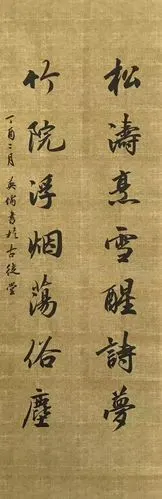 松濤烹雪醒詩夢
竹院浮烟蕩俗塵
丁酉二月書於古堂